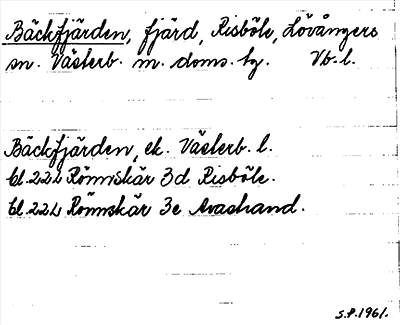 Bäckfjärden, fjärd, Risböle, Lövångers
sn. Västerb. m. doms. tg. Vb. l.
Bäckfjärden, ek. Västerb. l.
bl. 222 Rönnskär 3d Risböle.
bl. 222 Rönnskär 3e Avastrand.
S.P. 1961.